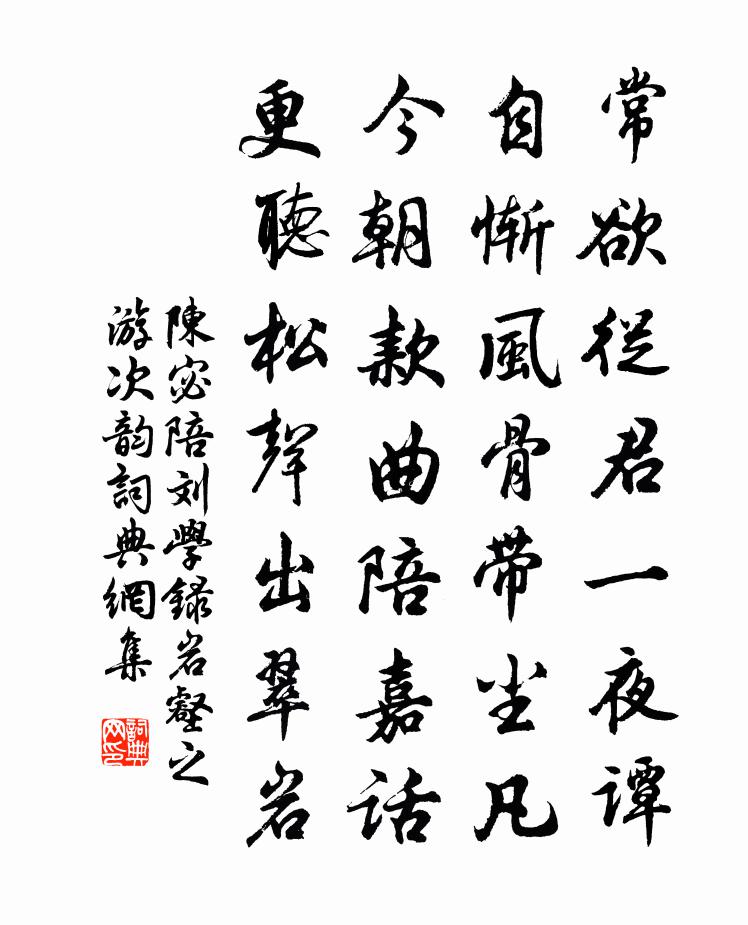 常欲從君一夜譚
自慚風骨带尘凡
今朝款曲陪嘉话
更聽松聲出翠岩
陳宓陪刘学録岩壑之
游次韵詞典網集
詞典网印